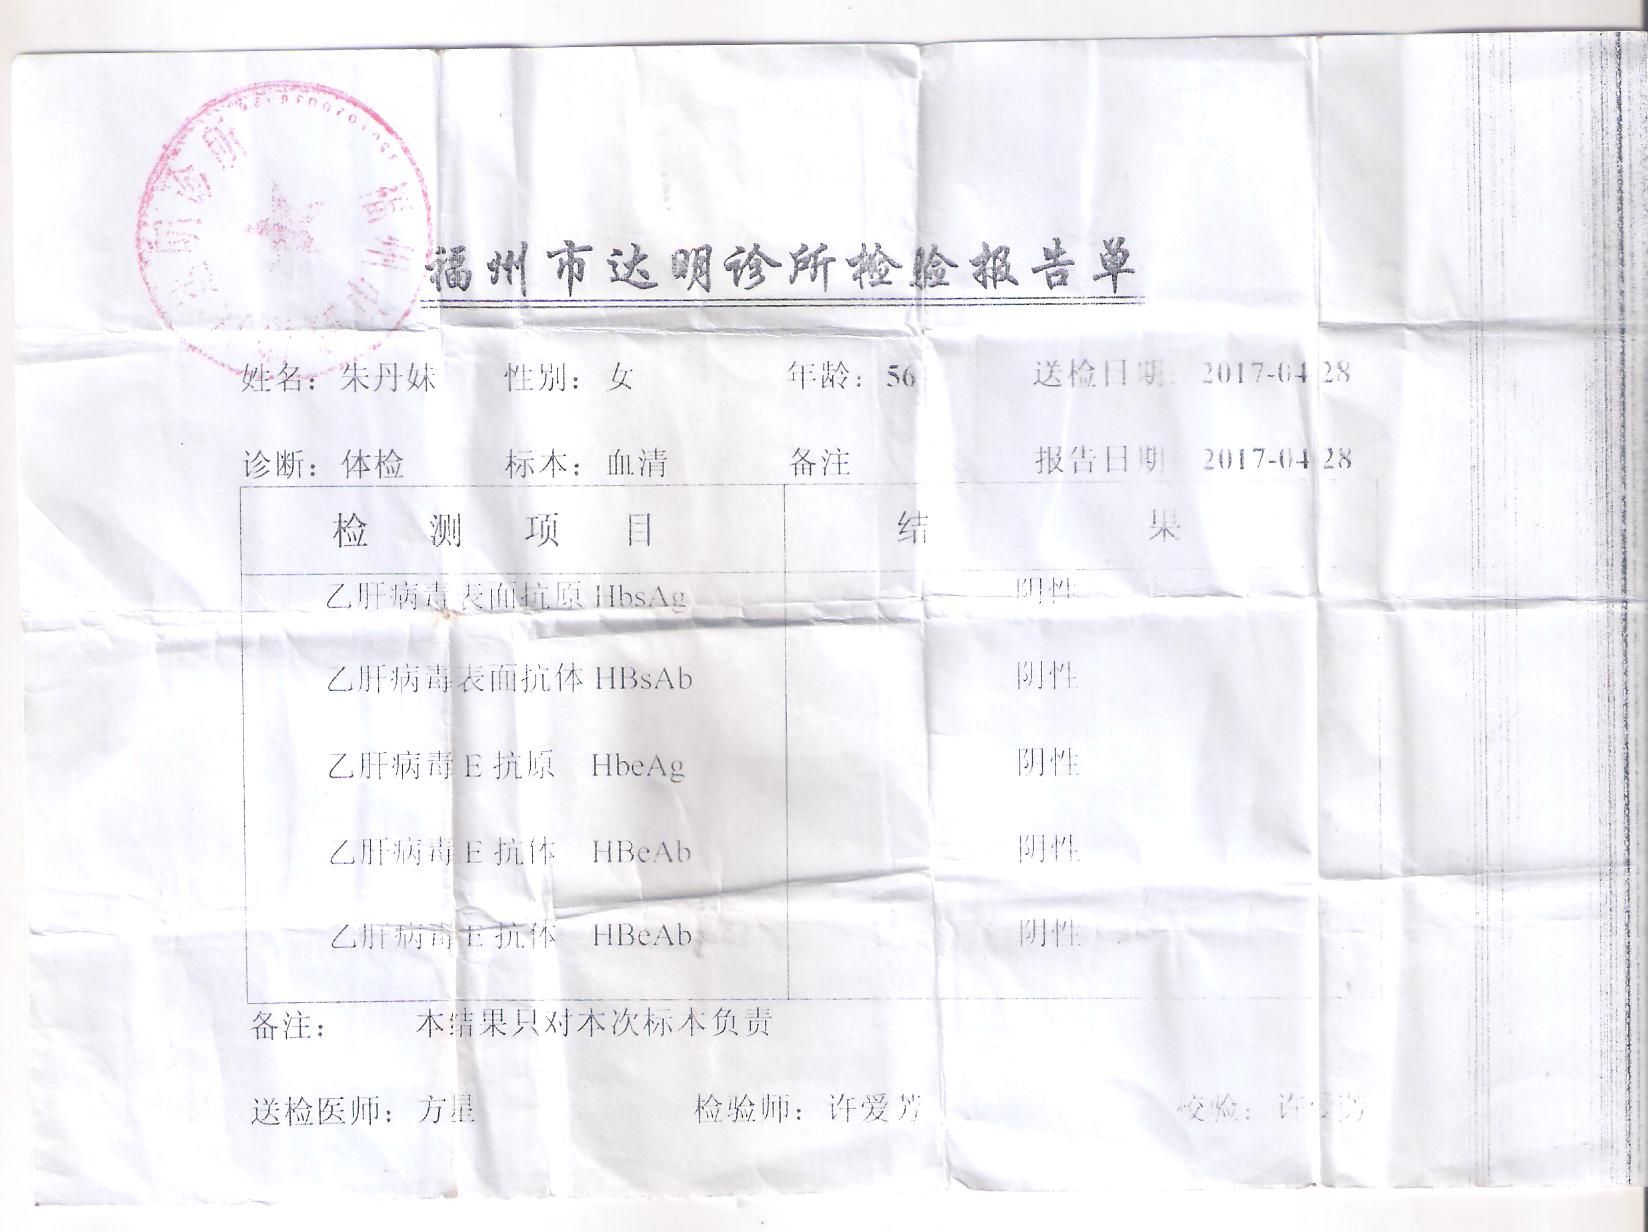 福州市达明诊所检验报告单
姓名：朱丹妹 性别：女 年龄：56 送检日期：2017-04-28
诊断：体检 标本：血清 备注 报告日期 2017-04-28
检 测 项 目 结 果
乙肝病毒表面抗原 HbsAg 阴性
乙肝病毒表面抗体 HBsAb 阴性
乙肝病毒 E 抗原 HbeAg 阴性
乙肝病毒 E 抗体 HBeAb 阴性
乙肝病毒 E 抗体 HBeAb 阴性
备注： 本结果只对本次标本负责
送检医师：方星 检验师：许爱芳 校验：许爱芳